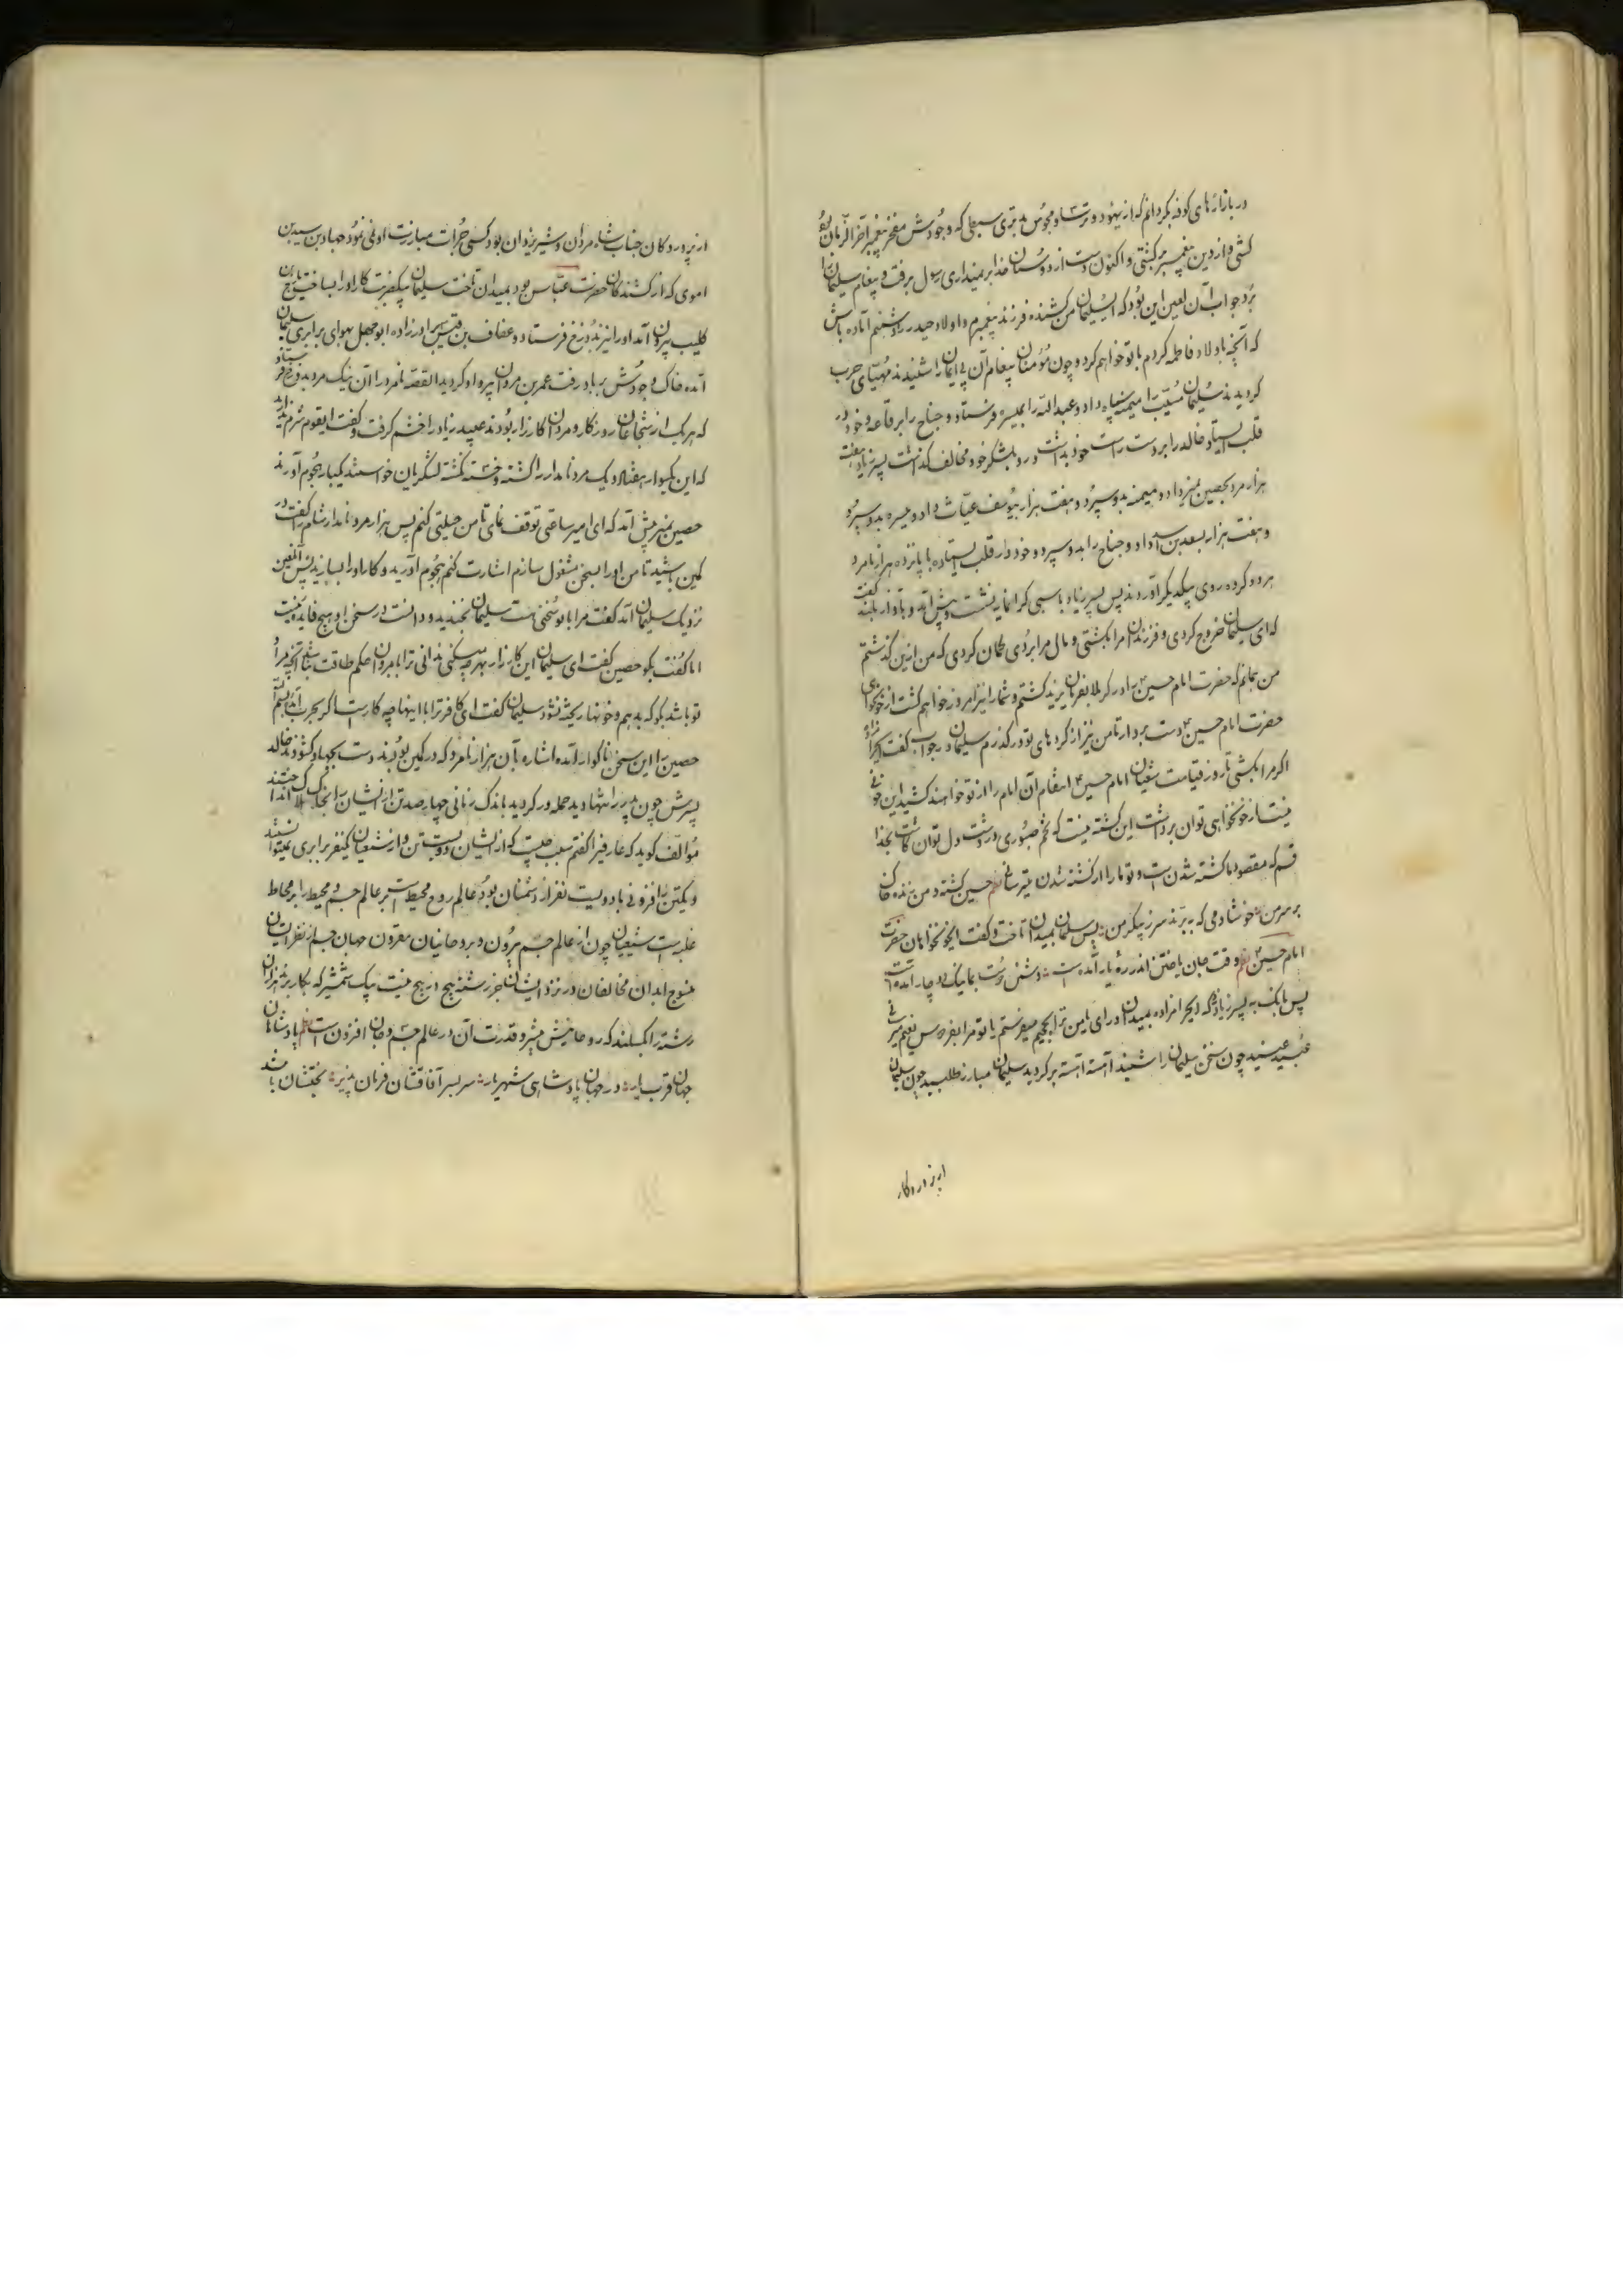 در بازارهای کوفه بگردانم که از یهود و ترسا و مجوس بدتری سبطی که وجودش مفخر پیغمبر آخر الزمان بود
کشتی و از دین پیغمبر برگشتی و اکنون دست از دوستان خدا بر نمیداری رسول برفت و پیغام سلیمان را
برد جواب آن لعین این بود که ای سلیمان من کشنده فرزند پیغمبرم و اولاد حیدر را دشمنم آماده باش
که آنچه باولاد فاطمه کردم با تو خواهم کرد و چون مؤمنان پیغام آن بی ایمان را شنیدند مهیای حرب
کردیدند سلیمان مسیب را میمنه سپاه داد و عبدالله را بمیسره فرستاد و جناح را برفاعه و خود در
قلب ایستاد خالد را بر دست راست خود بداشت و رو بلشکر خود مخالف گذاشت پسر زیاد هفت
هزار مرد بحصین نمیر داد و میمنه بدو سپرد و هفت هزار بیوسف غیاث داد و میسره بدو سپرد
و هفت هزار بسعد بن داد و جناح را بدو سپرد و خود در قلب بایستاد با پانزده هزار نامرد
هر دو گروه روی بیکدیگر آوردند پس پسر زیاد باسبی گرانمایه نشست و پیش آمد و بآواز بلند گفت
که ای سلیمان خروج کردی و فرزندان مرا بکشتی و مال مرا بردی گمان کردی که من ازین گذشتم
من بمانم که حضرت امام حسین ع را در کربلا بفرمان یزید کشتم و شما را نیز امروز خواهم کشت از خونخواهی
حضرت امام حسین ع دست بردار تا من نیز از کردهای تو درگذرم سلیمان در جواب گفت ای حرامزاده
اگر مرا بکشتی تا روز قیامت شیعیان امام حسین ع انتقام آن امام را از تو خواهند کشید این خونی
نیست از خونخواهی توان برداشت این کشته نیست که تخم صبوری در دشت دل توان کاشت بخدا
قسم که مقصود ما کشته شدن است و تو ما را از کشته شدن میترسانی حسین کشته و من زنده خاک
بر سر من خوشا دمی که ببرند سر ز پیکر من پس سلیمان بمیدان تاخت و گفت ای خونخواهان حضرت
امام حسین ع وقت جان باختن اندر ره یار آمده است دشمن دست بما نیک دچار آمده است
پس بانگ به پسر زیاد زد که ای حرامزاده بمیدان درای یا من ترا بجحیم میفرستم یا تو مرا بفردوس نعیم میرسانی
عبید عنید چون سخن سلیمان را شنید آهسته آهسته برگردید سلیمان مبارز طلبید چون سلیمان
از پروردگان
از پروردگان جناب شاه مردان و شیر یزدان بود کسی جرأت مبارزت او نمی نمود جهاد بن سید بن
اموی که از کشندگان حضرت عباس بود بمیدان تاخت سلیمان بیکضربت کار او را بساخت
کلیب بیرون آمد او را نیز بدوزخ فرستاد و عفاف بن قیس برادرزاده ابو جهل بهوای برابری سلیمان
آمده خاک وجودش بر باد رفت عمر بن مروان پیرو او گردید القصه نامرد را آن نیک مرد بدوزخ فرستاد
که هر یک از شجاعان روزگار و مردان کارزار بودند عبید زیاد را خشم گرفت و گفت ایقوم شرم ندارید
که این یکسوار هفتاد و یک مرد نامدار را کشته و خسته گشته لشگریان خواستند یکبار هجوم آورند
حصین نمیر پیش آمد که ای امیر ساعتی توقف نمای تا من حیلتی کنم پس هزار مرد نامدار شام را گفت در
کمین باشید تا من او را بسخن مشغول سازم اشارت کنم هجوم آورید و کار او را بسازید پس آن لعین
نزدیک سلیمان آمد گفت مرا با تو سخنی هست سلیمان بخندید و دانست در سخن او هیچ فایده نیست
اما گفت بگو حصین گفت ای سلیمان این کارزار بهر چه میکنی ندانی ترا با مروان حکم طاقت نباشد آنچه مراد
تو باشد بگو که بدهیم و خونها ریخته نشود سلیمان گفت ای کافر ترا با اینها چه کار است اگر بحرب آمدی
حصین را این سخن ناگوار آمده اشاره بآن هزار نامرد که در کمین بودند دست بجهاد گشودند خالد
پسرش چون پدر را تنها دید حمله ور گردید باندک زمانی چهار صد تن از ایشان را بخاک هلاک انداختند
مؤالف گوید که عارفی را گفتم سبب چیست که از ایشان دویست تن و از شیعیان یکنفر برابری نمیتوانستند
و یکتن را فزونی با دویست نفر از دشمنان بود عالم روح محیط است بر عالم جسم و محیط را بر محاط
غلبه است شیعیان چون از عالم جسم بیرون و بروحانیان مقرون جهان جسم از نظر ایشان
منسوج ابدان مخالفان در نزد ایشان جز رشته هیچ در هیچ نیست بیک شمشیر که بکار برند هزاران
رشته را بگسلند که روحانیش بیشتر و قدرت آن در عالم جسم و جان افزون است پادشاهان
جهان قرب یار در جهان پادشاهی شهریار سر بسر آفاقشان فرمان پذیر تختشان باشد